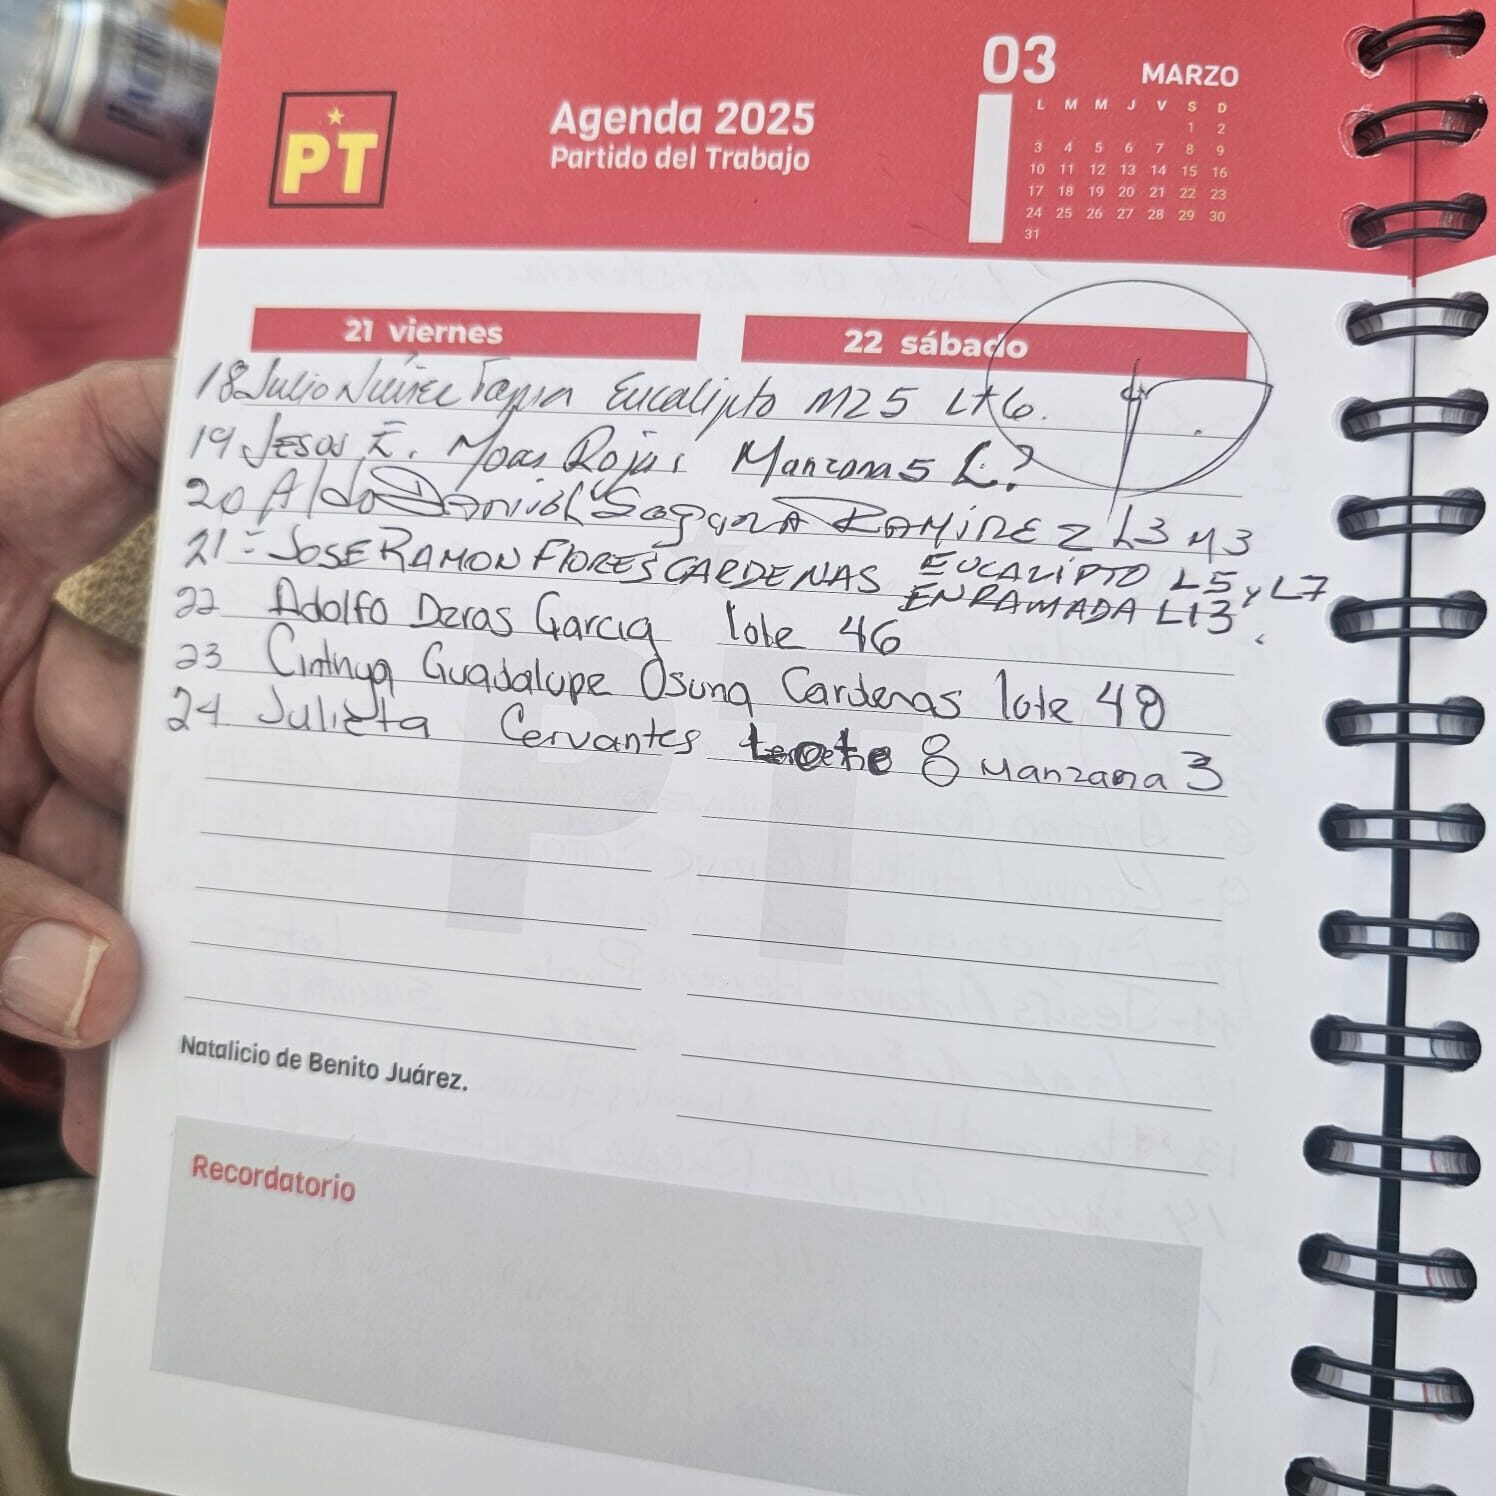 PT
Agenda 2025
Partido del Trabajo
03 MARZO
L M M J V S D
1 2
3 4 5 6 7 8 9
10 11 12 13 14 15 16
17 18 19 20 21 22 23
24 25 26 27 28 29 30
31
21 viernes
22 sábado
18 Julio Nuñez Eucalipto M25 Lt6.
19 Jesus E. Rojas Manzana 5 L.?
20 Aldo Daniel RAMIREZ L3 M3
21 = JOSE RAMON FLORES CARDENAS EUCALIPTO L5 y L7
ENRAMADA L13.
22 Adolfo Deras Garcia lote 46
23 Cinthya Guadalupe Osuna Cardenas lote 48
24 Julieta Cervantes lote 8 Manzana 3
Natalicio de Benito Juárez.
Recordatorio